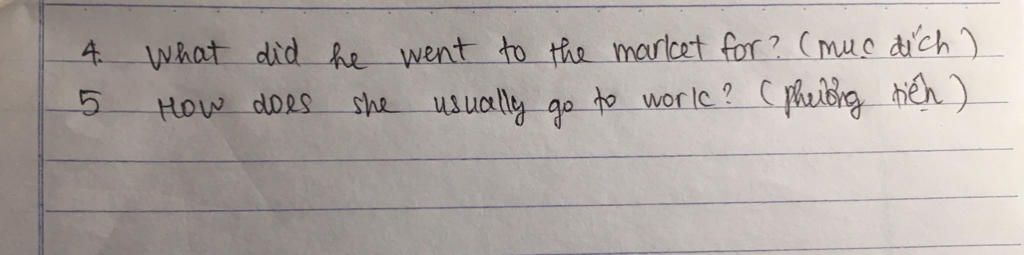 4. What did he went to the market for? (mục đích)
5 How does she usually go to work? (phương tiện)